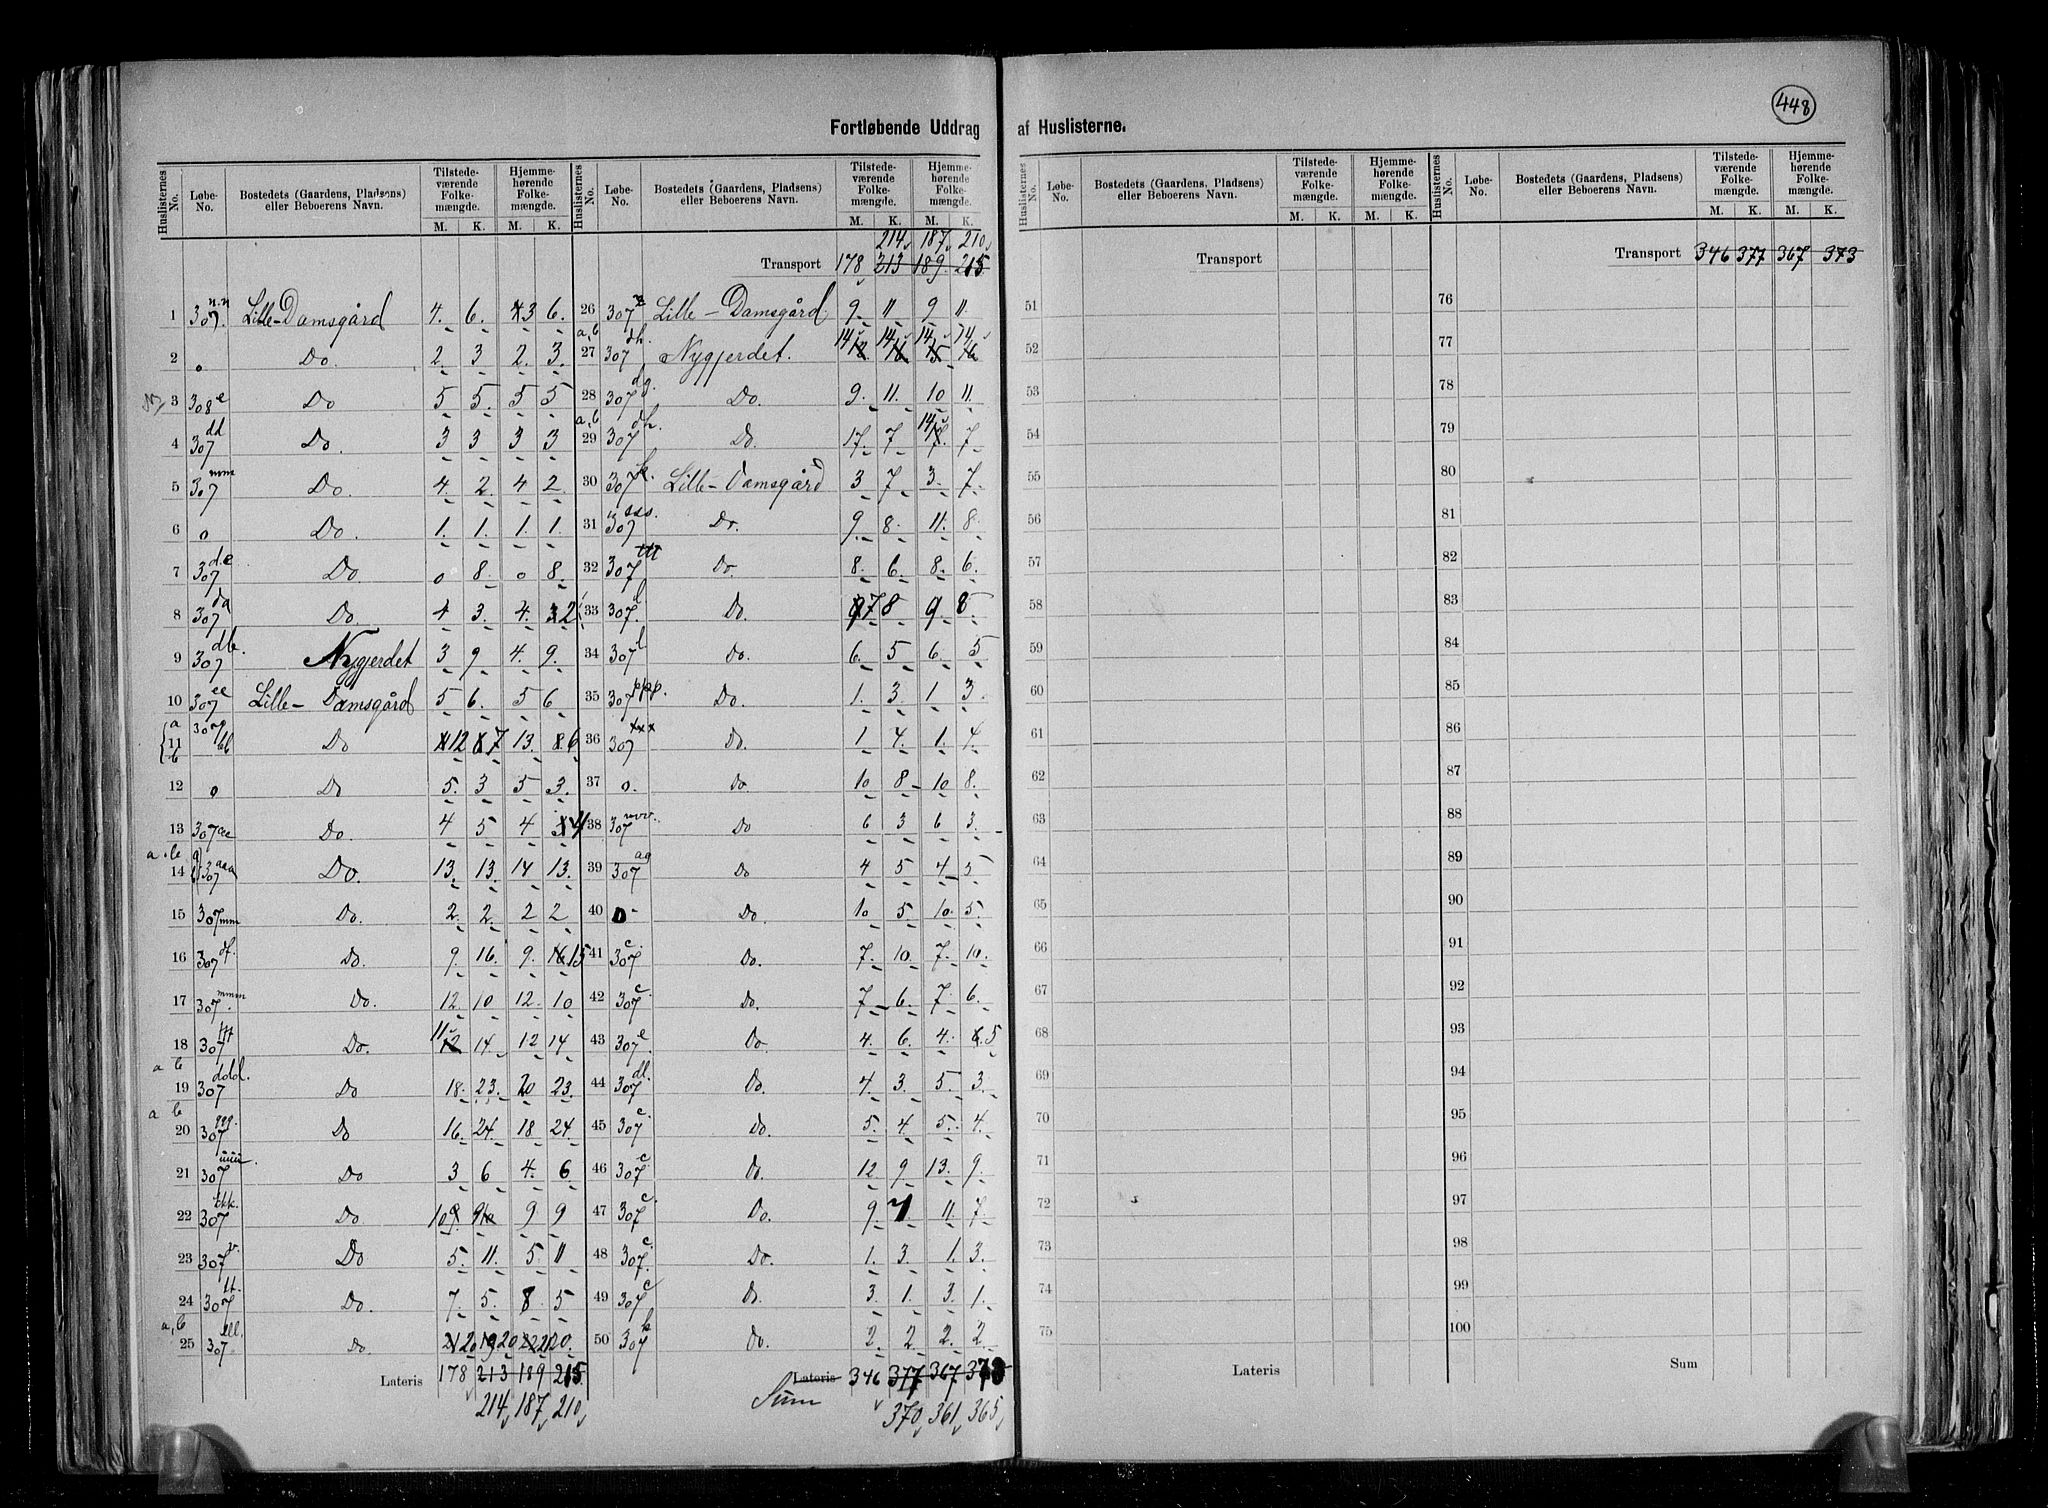 448
Fortløbende Uddrag af Huslisterne.
Huslisternes No. Løbe-No. Bostedets (Gaardens, Pladsens) eller Beboerens Navn. Tilstedeværende Folkemængde. M. K. Hjemmehørende Folkemængde. M. K.
1 307 n.n Lille-Damsgård 4. 6. 3 6.
2 o Do. 2. 3 2. 3.
3 308 e Do 5 5. 5 5
4 307 dd Do. 3 3 3 3
5 307 mm Do. 4. 2. 4 2.
6 o Do. 1. 1. 1. 1.
7 307 d.e Do o 8. o 8.
8 307 da Do 4 3. 4. 2
9 307 db. Nygjerdet 3 9. 4. 9.
10 307 ee Lille-Damsgård 5 6. 5 6
a b 11 307 bb Do 12 7 13. 6
12 o Do 5. 3 5 3.
13 307 ee Do. 4 5 4 4
a . b 14 307 aaa Do. 13. 13. 14 13.
15 307 mm Do. 2. 2. 2 2
16 307 df. Do. 9. 16. 9. 15
17 307 mmm Do. 12. 10 12. 10
18 307 Do. 11 14 12 14
a b 19 307 dddd. Do 18. 23. 20 23.
a b 20 307 qqq. Do 16. 24. 18 24.
21 307 uuu. Do 3 6 4. 6
22 307 kkk. Do 10 9 9 9
23 307 v. Do 5. 11. 5 11
24 307 tt. Do. 7. 5. 8. 5
a, b 25 307 lll. Do. 20 20 21 20.
Lateris 178 213 189 215
214 187 210
214 187 210
Transport 178 213 189 215
26 307 Lille-Damsgård 9. 11 9 11.
a, b 27 307 dh. Nygjerdet. 14 14 14 14
28 307 dg. Do. 9. 11. 10 11.
a, b 29 307 dh. Do. 17. 7 14 7
30 307 k. Lille-Damsgård 3 7. 3. 7.
31 307 sss. Do. 9. 8. 11. 8.
32 307 ttt Do. 8. 6. 8. 6.
33 307. d Do. 7 8 9 8
34 307 l Do. 6. 5 6. 5
35 307 ppp. Do 1. 3. 1 3.
36 307 xxx Do. 1 4. 1. 4.
37 o. Do 10 8 10 8.
38 307 vvv. Do 6 3 6 3.
39 307 ag Do 4 5 4 5
40 o - Do. 10 5. 10. 5.
41 307 c. Do. 7. 10. 7. 10.
42 307 c. Do. 7 6. 7. 6.
43 307 e. Do. 4. 6. 4. 5
44 307 dl. Do. 4. 3. 5. 3.
45 307 c. Do. 5. 4. 5. 4.
46 307 c Do. 12 9 13. 9.
47 307 c. Do. 9. 7 11. 7.
48 307. c. Do. 1. 3. 1. 3.
49 307 c Do. 3. 1. 3. 1.
50 307 k Do. 2. 2. 2. 2
Lateris 346 377 367 373
Sum 370 361 365
Huslisternes No. Løbe-No. Bostedets (Gaardens, Pladsens) eller Beboerens Navn. Tilstedeværende Folkemængde. M. K. Hjemmehørende Folkemængde. M. K.
Transport
51
52
53
54
55
56
57
58
59
60
61
62
63
64
65
66
67
68
69
70
71
72
73
74
75
Lateris
Huslisternes No. Løbe-No. Bostedets (Gaardens, Pladsens) eller Beboerens Navn. Tilstedeværende Folkemængde. M. K. Hjemmehørende Folkemængde. M. K.
Transport 346 377 367 373
76
77
78
79
80
81
82
83
84
85
86
87
88
89
90
91
92
93
94
95
96
97
98
99
100
Sum